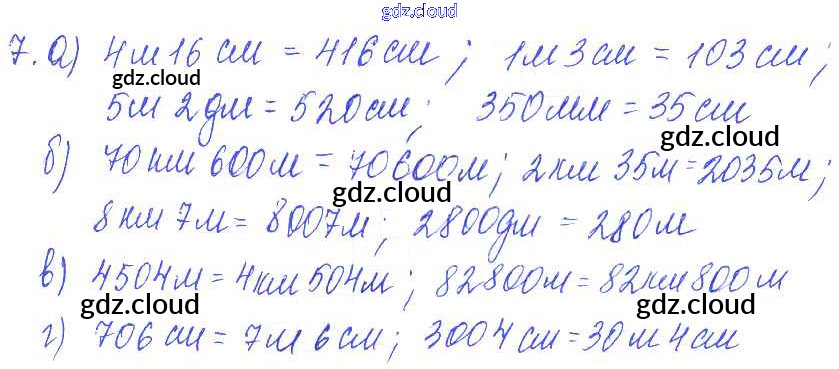 gdz.cloud
7. а) 4м 16 см = 416 см; 1м 3 см = 103 см;
gdz.cloud
5м 2 дм = 520 см; 350 мм = 35 см
gdz.cloud
б) 70 км 600 м = 70600 м; 2 км 35 м = 2035 м;
gdz.cloud
8 км 7 м = 8007 м; 2800 дм = 280 м
в) 4504 м = 4 км 504 м; 82800 м = 82 км 800 м
gdz.cloud gdz.cloud
г) 706 см = 7 м 6 см; 3004 см = 30 м 4 см